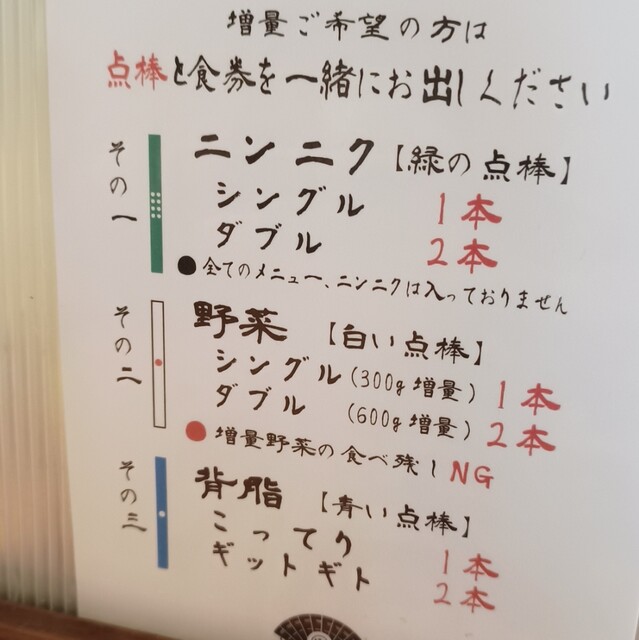 増量ご希望の方は
点棒と食券を一緒にお出しください
その一
ニンニク【緑の点棒】
シングル 1本
ダブル 2本
●全てのメニュー、ニンニクは入っておりません
その二
野菜【白い点棒】
シングル(300g増量)1本
ダブル(600g増量)2本
●増量野菜の食べ残しNG
その三
背脂【青い点棒】
こってり 1本
ギットギト 2本